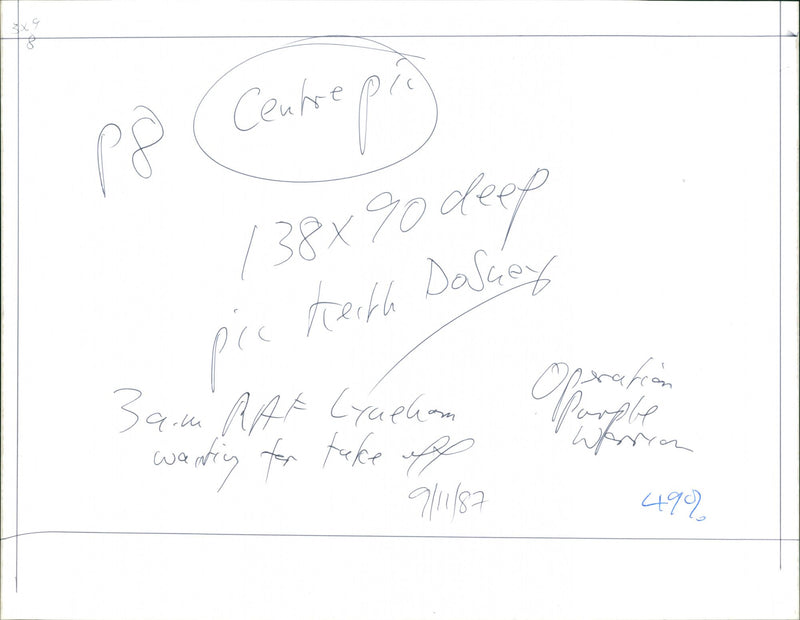 3x9
8
Centre pic
p8
138 x 90 deep
pic Keith
3 a.m RAF Lyneham
waiting for take off
9/11/87
Operation
Purple
Warrior
49%